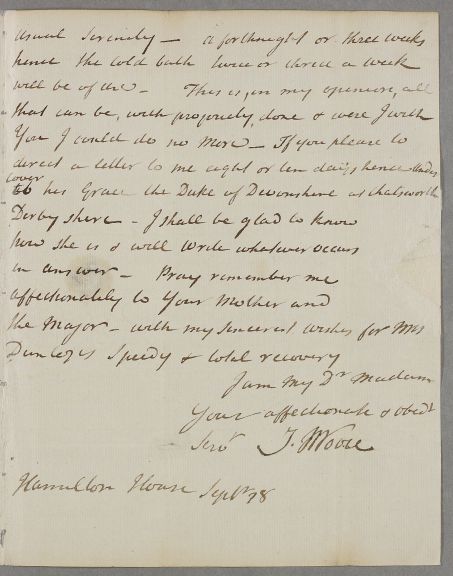 usual Serenity — a forthneight or three weeks
hence the cold bath twice or thrice a week
will be of use — This is, in my openion, all
that can be, with propriety, done & were I with
You I could do no more — If you please to
direct a letter to me eight or ten days hence under
cover
to his Grace the Duke of Devonshire at Chatsworth
Derbyshere — I shall be glad to know
how she is & will write whatever occurs
in answer — Pray remember me
affectionately to Your Mother and
the Major — with my sincerest wishes for Mrs
Dunlop's Speedy & total recovery
I am My Dr Madam
Your affectionate & obedt
Servt J. Moore
Hamilton House Septr 28